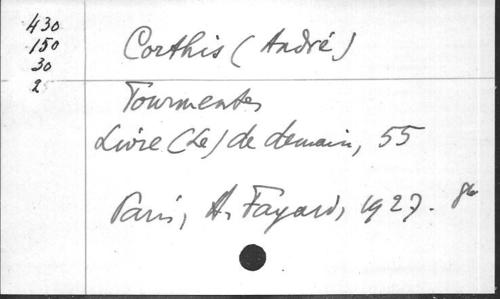 430
150
30
2
Corthis (André)
Tourmentes
Livre (Le) de demain, 55
Paris, A. Fayard, 1927.